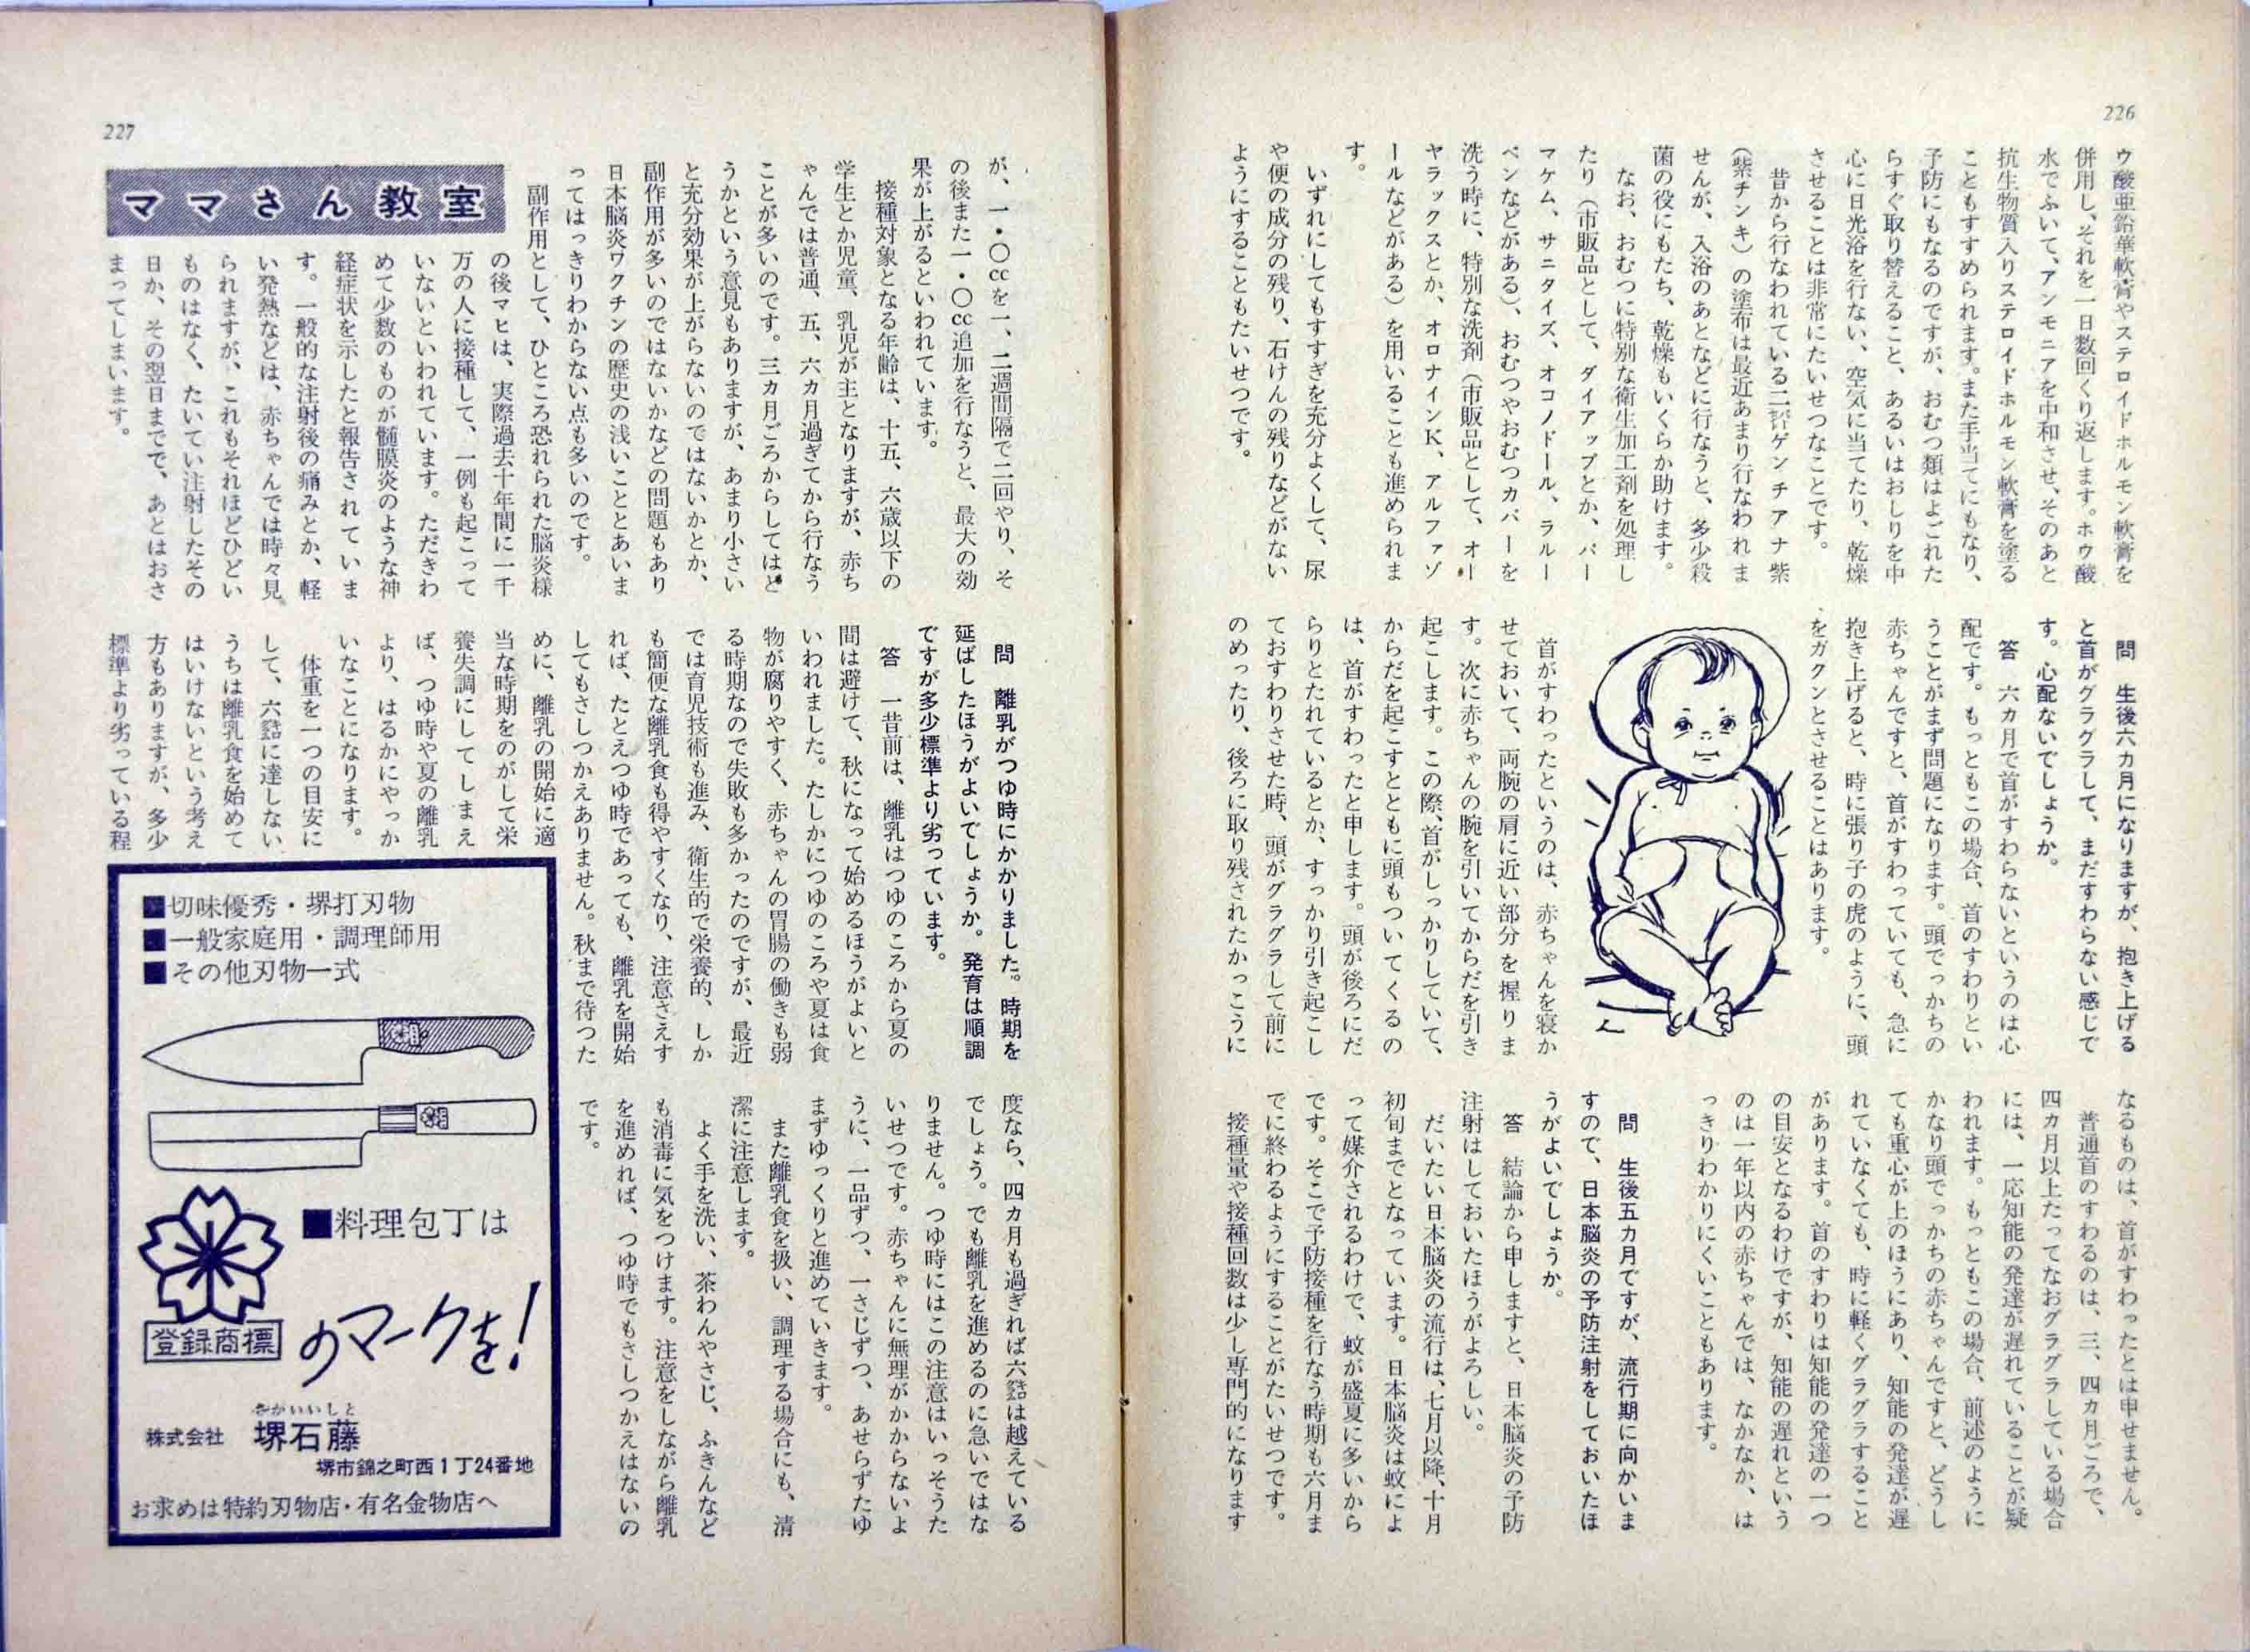 226
ウ酸亜鉛華軟膏やステロイドホルモン軟膏を
併用し、それを一日数回くり返します。ホウ酸
水でふいて、アンモニアを中和させ、そのあと
抗生物質入りステロイドホルモン軟膏を塗る
こともすすめられます。また手当てにもなり、
予防にもなるのですが、おむつ類はよごれた
らすぐ取り替えること、あるいはおしりを中
心に日光浴を行ない、空気に当てたり、乾燥
させることは非常にたいせつなことです。
昔から行なわれている二㌫ゲンチアナ紫
(紫チンキ)の塗布は最近あまり行なわれま
せんが、入浴のあとなどに行なうと、多少殺
菌の役にもたち、乾燥もいくらか助けます。
なお、おむつに特別な衛生加工剤を処理し
たり(市販品として、ダイアップとか、パー
マケム、サニタイズ、オコノドール、ラルー
ペンなどがある)、おむつやおむつカバーを
洗う時に、特別な洗剤(市販品として、オー
ヤラックスとか、オロナインK、アルファゾ
ールなどがある)を用いることも進められま
す。
いずれにしてもすすぎを充分よくして、尿
や便の成分の残り、石けんの残りなどがない
ようにすることもたいせつです。
問 生後六カ月になりますが、抱き上げる
と首がグラグラして、まだすわらない感じで
す。心配ないでしょうか。
答 六カ月で首がすわらないというのは心
配です。もっともこの場合、首のすわりとい
うことがまず問題になります。頭でっかちの
赤ちゃんですと、首がすわっていても、急に
抱き上げると、時に張り子の虎のように、頭
をガクンとさせることはあります。
首がすわったというのは、赤ちゃんを寝か
せておいて、両腕の肩に近い部分を握りま
す。次に赤ちゃんの腕を引いてからだを引き
起こします。この際、首がしっかりしていて、
からだを起こすとともに頭もついてくるの
は、首がすわったと申します。頭が後ろにだ
らりとたれているとか、すっかり引き起こし
ておすわりさせた時、頭がグラグラして前に
のめったり、後ろに取り残されたかっこうに
なるものは、首がすわったとは申せません。
普通首のすわるのは、三、四カ月ごろで、
四カ月以上たってなおグラグラしている場合
には、一応知能の発達が遅れていることが疑
われます。もっともこの場合、前述のように
かなり頭でっかちの赤ちゃんですと、どうし
ても重心が上のほうにあり、知能の発達が遅
れていなくても、時に軽くグラグラすること
があります。首のすわりは知能の発達の一つ
の目安となるわけですが、知能の遅れという
のは一年以内の赤ちゃんでは、なかなか、は
っきりわかりにくいこともあります。
問 生後五カ月ですが、流行期に向かいま
すので、日本脳炎の予防注射をしておいたほ
うがよいでしょうか。
答 結論から申しますと、日本脳炎の予防
注射はしておいたほうがよろしい。
だいたい日本脳炎の流行は、七月以降、十月
初旬までとなっています。日本脳炎は蚊によ
って媒介されるわけで、蚊が盛夏に多いから
です。そこで予防接種を行なう時期も六月ま
でに終わるようにすることがたいせつです。
接種量や接種回数は少し専門的になります
227
ママさん教室
が、一・〇ccを一、二週間隔で二回やり、そ
の後また一・〇cc追加を行なうと、最大の効
果が上がるといわれています。
接種対象となる年齢は、十五、六歳以下の
学生とか児童、乳児が主となりますが、赤ち
ゃんでは普通、五、六カ月過ぎてから行なう
ことが多いのです。三カ月ごろからしてはど
うかという意見もありますが、あまり小さい
と充分効果が上がらないのではないかとか、
副作用が多いのではないかなどの問題もあり
日本脳炎ワクチンの歴史の浅いこととあいま
ってはっきりわからない点も多いのです。
副作用として、ひところ恐れられた脳炎様
の後マヒは、実際過去十年間に一千
万の人に接種して、一例も起こって
いないといわれています。ただきわ
めて少数のものが髄膜炎のような神
経症状を示したと報告されていま
す。一般的な注射後の痛みとか、軽
い発熱などは、赤ちゃんでは時々見
られますが、これもそれほどひどい
ものはなく、たいてい注射したその
日か、その翌日までで、あとはおさ
まってしまいます。
問 離乳がつゆ時にかかりました。時期を
延ばしたほうがよいでしょうか。発育は順調
ですが多少標準より劣っています。
答 一昔前は、離乳はつゆのころから夏の
間は避けて、秋になって始めるほうがよいと
いわれました。たしかにつゆのころや夏は食
物が腐りやすく、赤ちゃんの胃腸の働きも弱
る時期なので失敗も多かったのですが、最近
では育児技術も進み、衛生的で栄養的、しか
も簡便な離乳食も得やすくなり、注意さえす
れば、たとえつゆ時であっても、離乳を開始
してもさしつかえありません。秋まで待った
めに、離乳の開始に適
当な時期をのがして栄
養失調にしてしまえ
ば、つゆ時や夏の離乳
より、はるかにやっか
いなことになります。
体重を一つの目安に
して、六㌔に達しない
うちは離乳食を始めて
はいけないという考え
方もありますが、多少
標準より劣っている程
度なら、四カ月も過ぎれば六㌔は越えている
でしょう。でも離乳を進めるのに急いではな
りません。つゆ時にはこの注意はいっそうた
いせつです。赤ちゃんに無理がかからないよ
うに、一品ずつ、一さじずつ、あせらずたゆ
まずゆっくりと進めていきます。
また離乳食を扱い、調理する場合にも、清
潔に注意します。
よく手を洗い、茶わんやさじ、ふきんなど
も消毒に気をつけます。注意をしながら離乳
を進めれば、つゆ時でもさしつかえはないの
です。
■切味優秀・堺打刃物
■一般家庭用・調理師用
■その他刃物一式
■料理包丁は
登録商標
のマークを!
さかいいしとう
株式会社 堺石藤
堺市錦之町西1丁24番地
お求めは特約刃物店・有名金物店へ